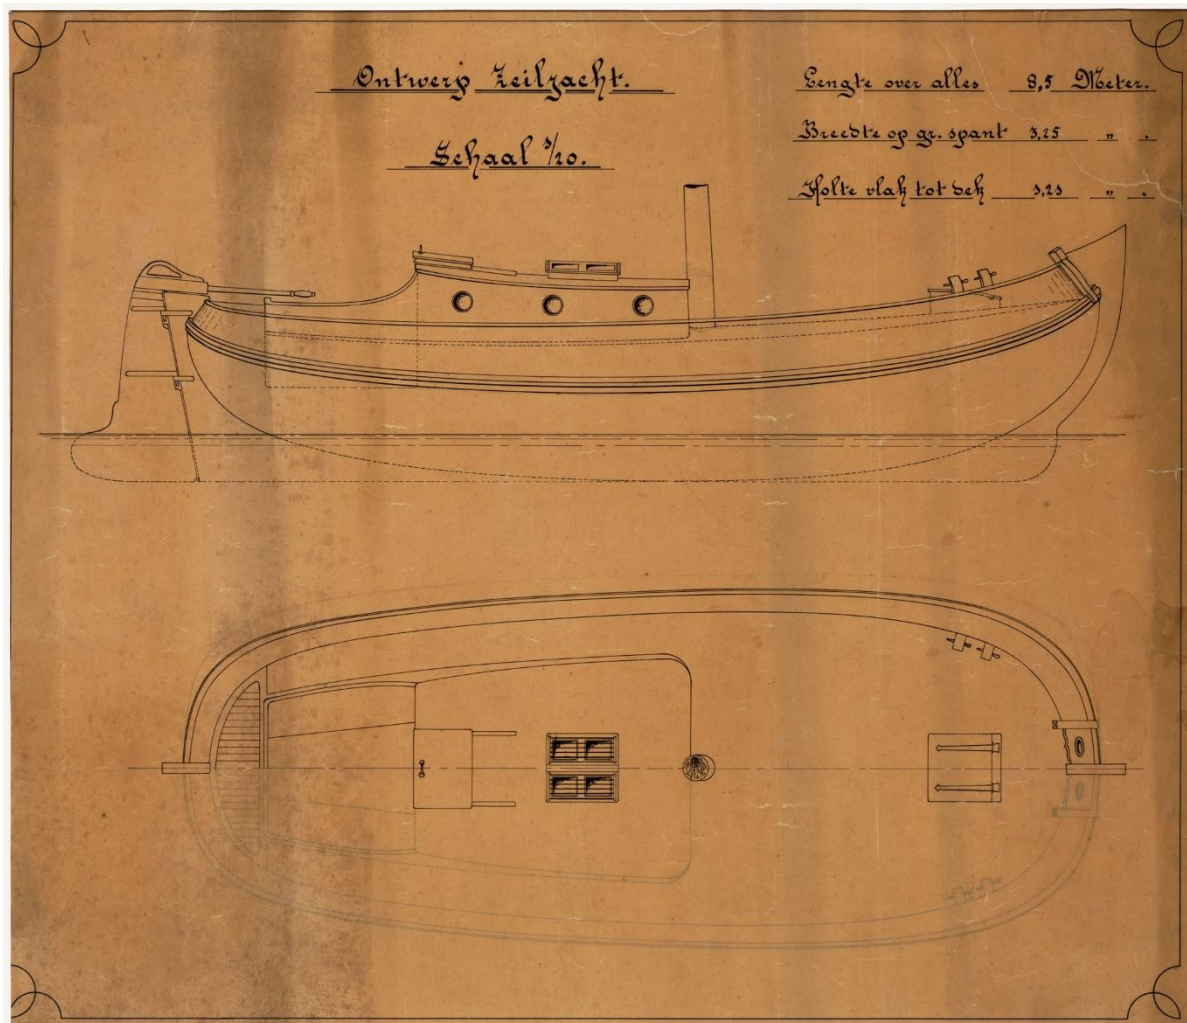 Ontwerp Zeiljacht.
Schaal 1/20.
Lengte over alles 8,5 Meter.
Breedte op gr. spant 3,25 „ .
Holte vlak tot dek 1,21 „ .